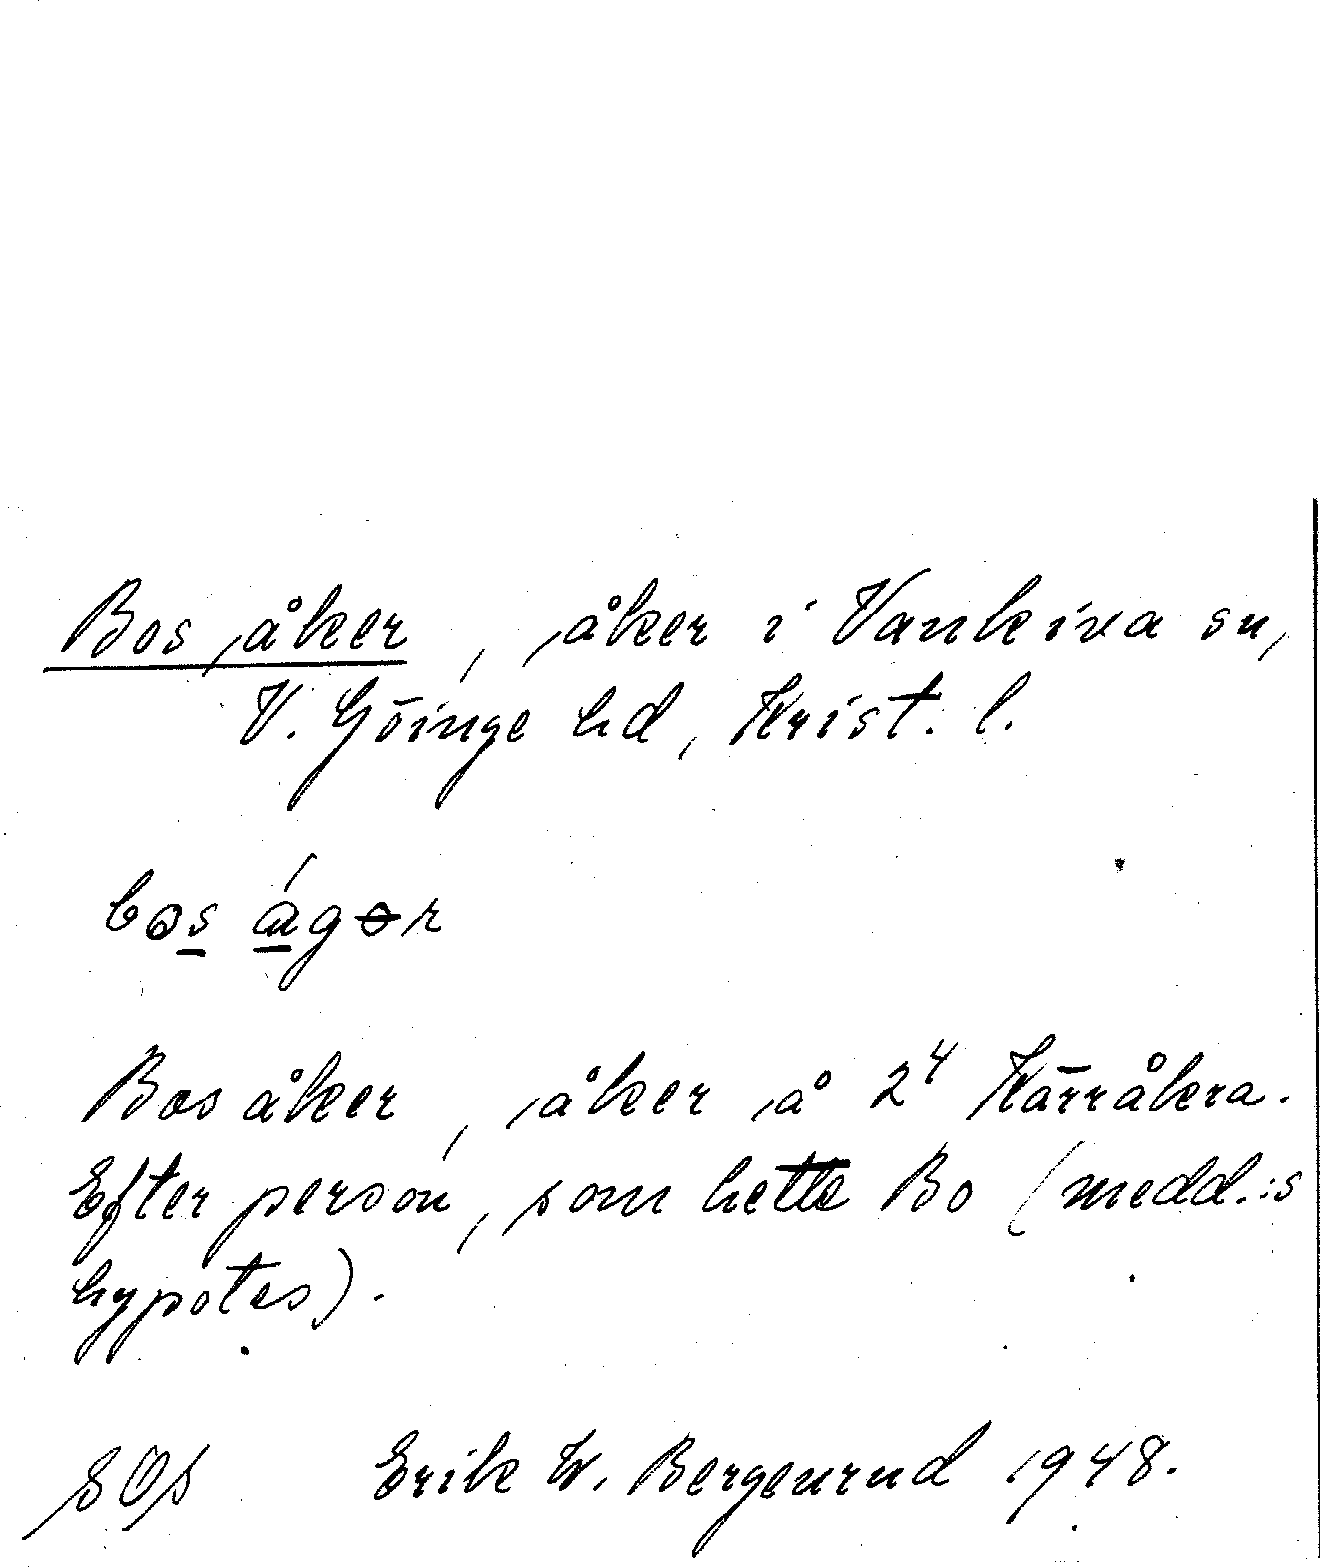 Bos åker, åker i Vankiva sn,
V. Göinge hd, Krist. l.
Bos åker, åker å 2⁴ Kärråkra.
Efter person, som hette Bo (medd.:s
hypotes).
SOS Erik W. Bergenrud 1948.